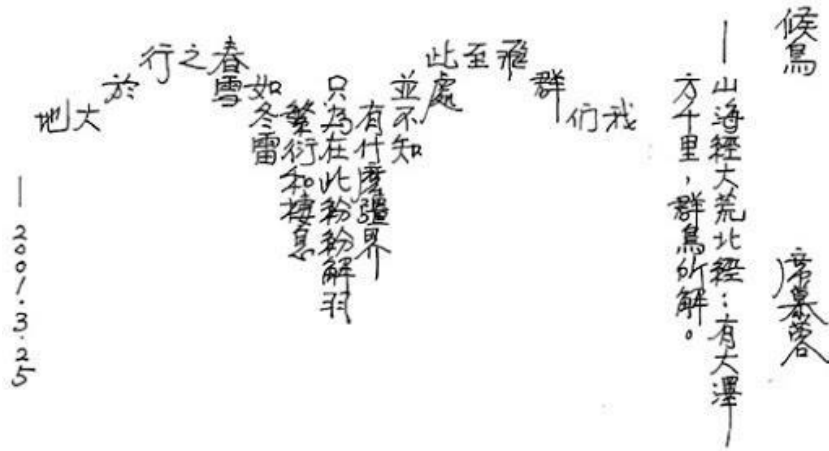 候鳥 席慕蓉
—山海經大荒北經：有大澤
方千里，群鳥所解。
我
們
群
飛
至
此處
並不知
有什麼疆界
只為在此紛紛解羽
繁衍和棲息
如冬雷
春雪
之
行
於
大
地
—2001.3.25